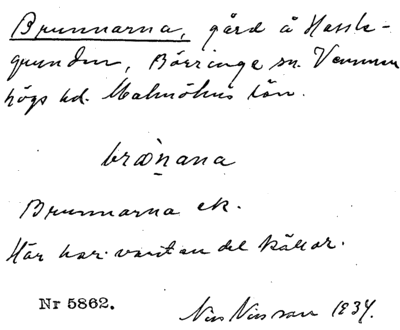 Brunnarna, gård å Hassle-
grunden, Börringe sn. Vemmen
högs hd. Malmöhus län.
bræn̠ana
Brunnarna ek.
Här har varit en del källor.
Nr 5862.
Nils Nilsson 1934.